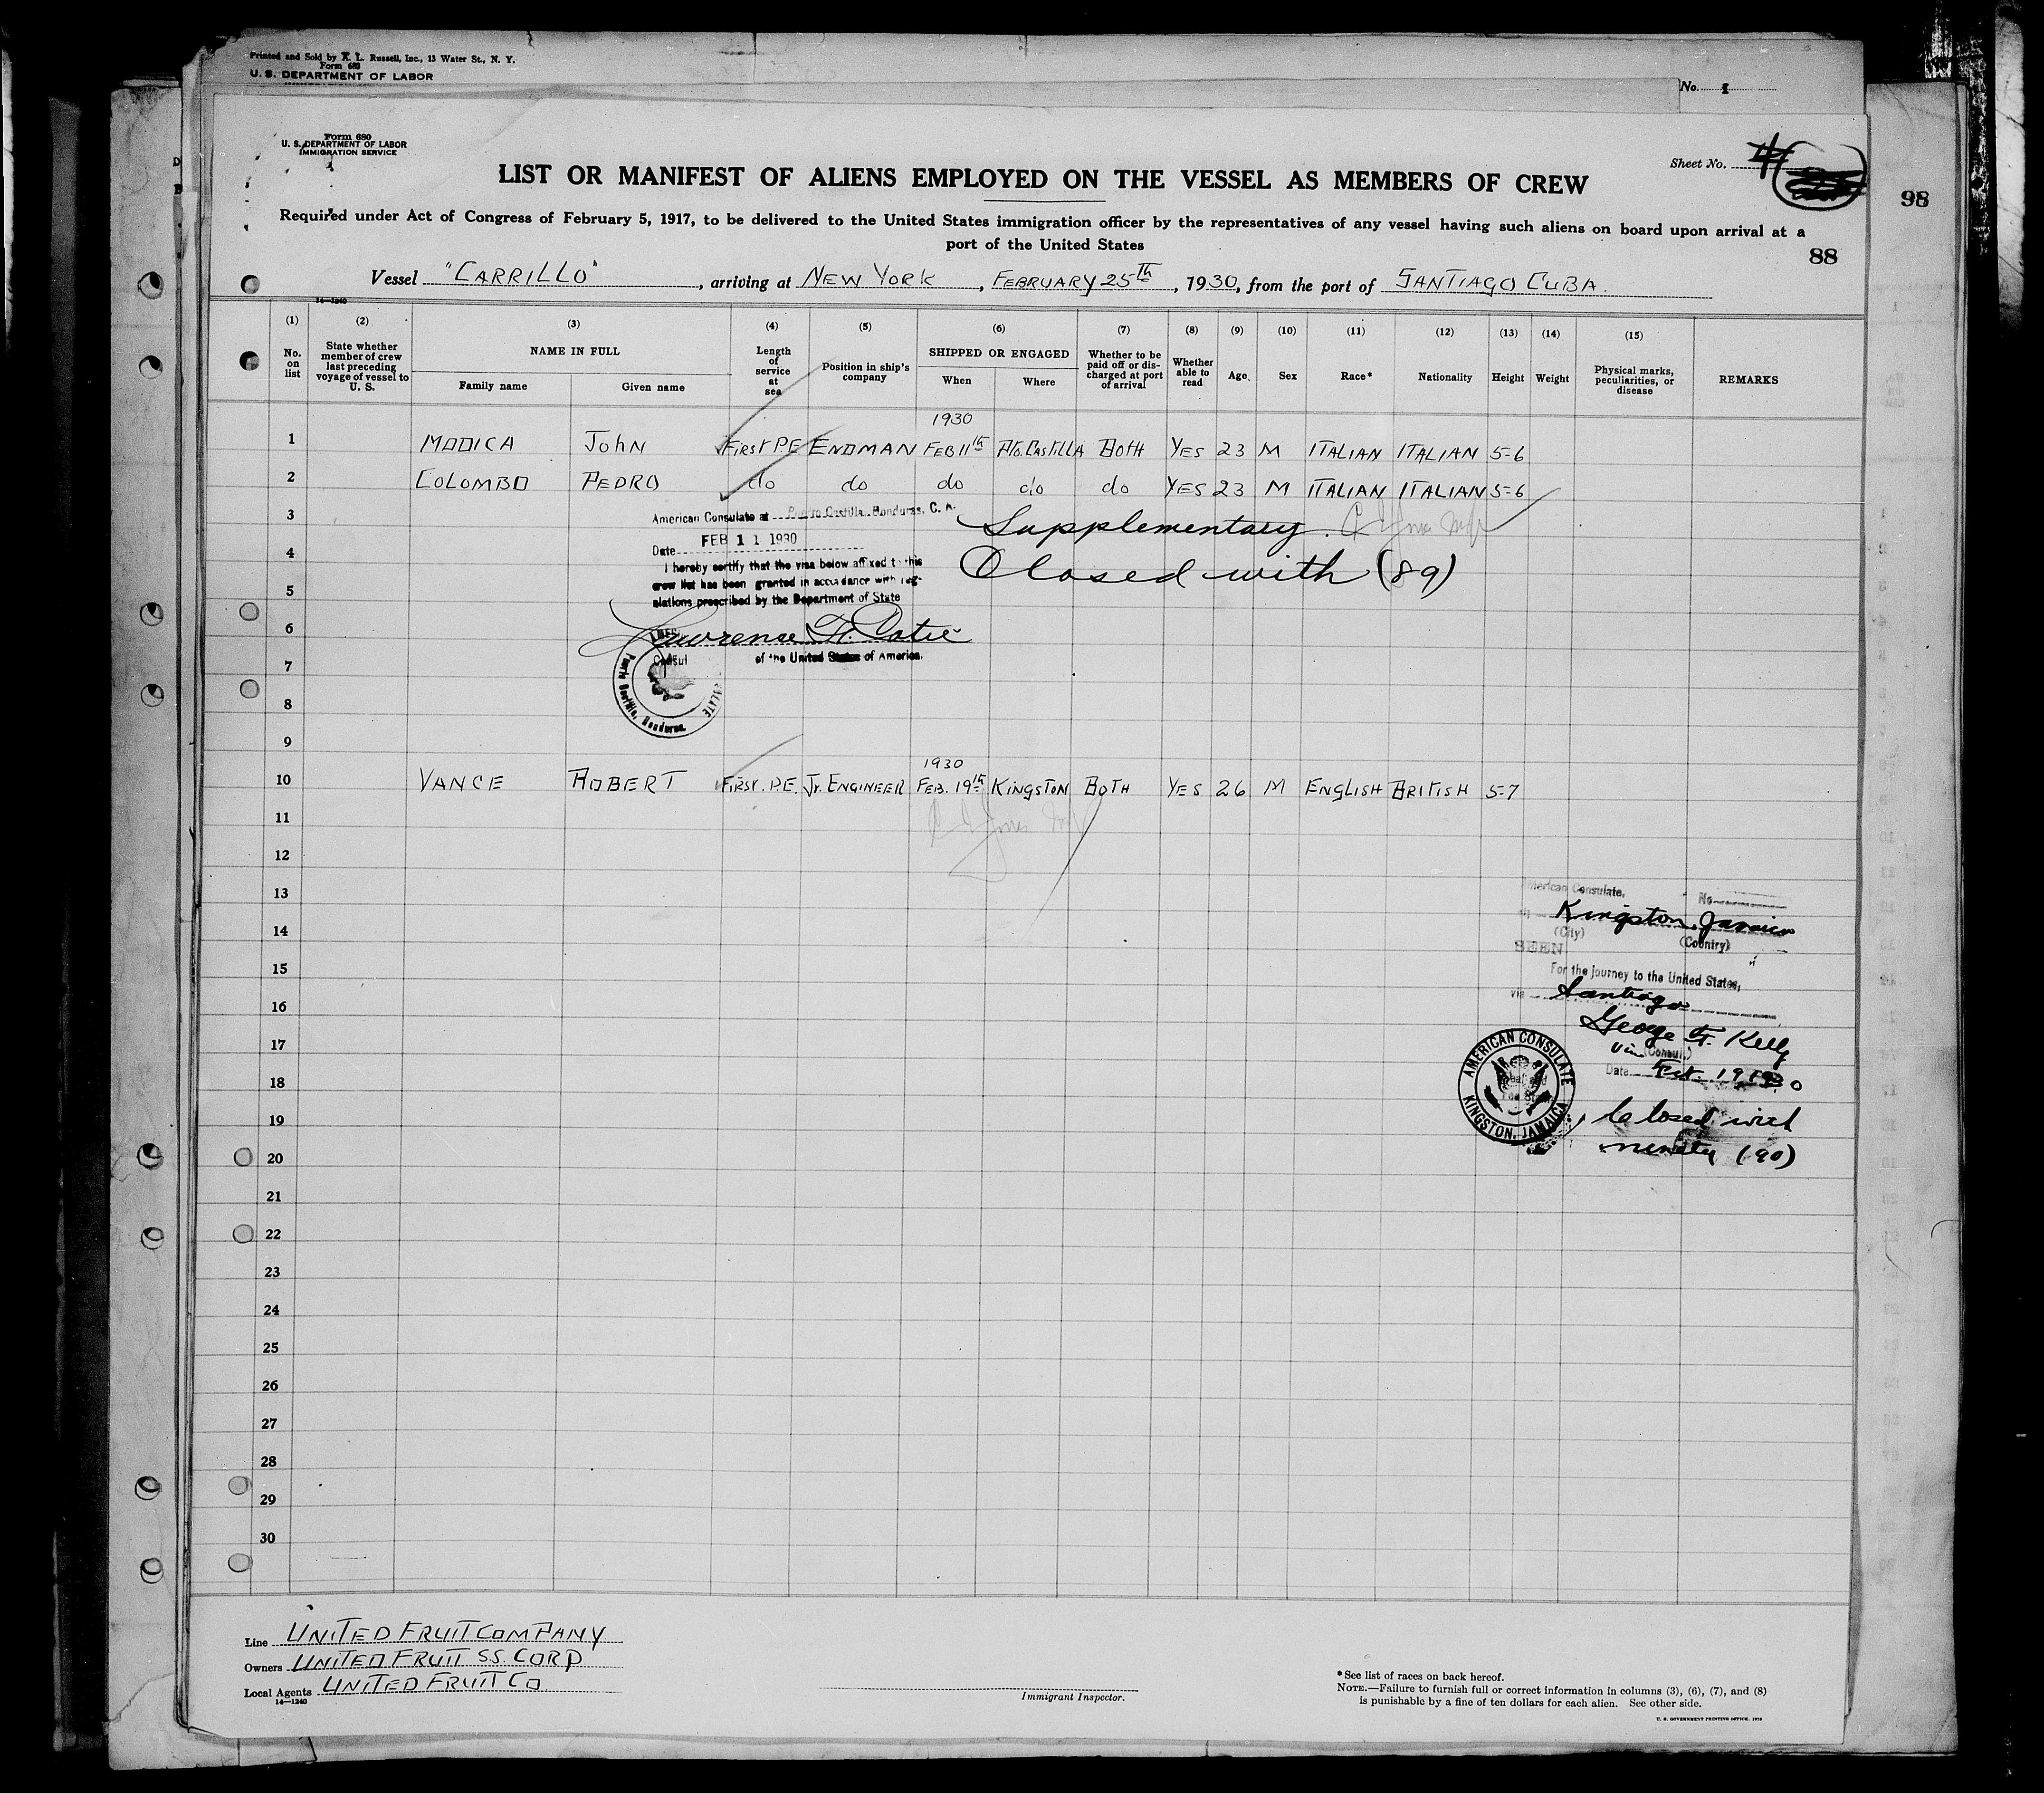 Printed and Sold by K. L. Russell, Inc., 13 Water St., N. Y.
Form 680
U. S. DEPARTMENT OF LABOR
No. 1
Form 680
U. S. DEPARTMENT OF LABOR
IMMIGRATION SERVICE
Sheet No. 4
98
LIST OR MANIFEST OF ALIENS EMPLOYED ON THE VESSEL AS MEMBERS OF CREW
Required under Act of Congress of February 5, 1917, to be delivered to the United States immigration officer by the representatives of any vessel having such aliens on board upon arrival at a
port of the United States
88
Vessel "CARRILLO", arriving at NEW YORK, FEBRUARY 25th, 1930, from the port of SANTIAGO CUBA.
14—1240
(1) No. on list
(2) State whether member of crew last preceding voyage of vessel to U. S.
(3) NAME IN FULL
Family name Given name
(4) Length of service at sea
(5) Position in ship's company
(6) SHIPPED OR ENGAGED
When Where
(7) Whether to be paid off or discharged at port of arrival
(8) Whether able to read
(9) Age
(10) Sex
(11) Race*
(12) Nationality
(13) Height
(14) Weight
(15) Physical marks, peculiarities, or disease
REMARKS
1930
1 MODICA JOHN FIRST P.E ENDMAN FEB 11th PTO. CASTILLA BOTH YES 23 M ITALIAN ITALIAN 5-6
2 COLOMBO PEDRO do do do do do YES 23 M ITALIAN ITALIAN 5-6
3
American Consulate at Puerto Castilla, Honduras, C. A.
Supplementary.
4
Date FEB 11 1930
Closed with (89)
I hereby certify that the visa below affixed to this
crew list has been granted in accordance with reg-
5
ulations prescribed by the Department of State
6
Lawrence F. Cotie
7
Consul of the United States of America.
Puerto Castilla, Honduras.
8
9
1930
10 VANCE ROBERT FIRST. P.E. Jr. ENGINEER FEB. 19th KINGSTON BOTH YES 26 M ENGLISH BRITISH 5-7
11
12
13
American Consulate, No
Kingston, Jamaica
14
(City) (Country)
SEEN
15
For the journey to the United States,
16
via Santiago
George F. Kelly
17
Vice (Consul)
18
Date Feb. 19 1930
AMERICAN CONSULATE
KINGSTON, JAMAICA
19
Closed with
20
ninety (90)
21
22
23
24
25
26
27
28
29
30
Line UNITED FRUIT COMPANY
Owners UNITED FRUIT S.S. CORP
Local Agents UNITED FRUIT CO.
14—1240
Immigrant Inspector.
*See list of races on back hereof.
NOTE.—Failure to furnish full or correct information in columns (3), (6), (7), and (8)
is punishable by a fine of ten dollars for each alien. See other side.